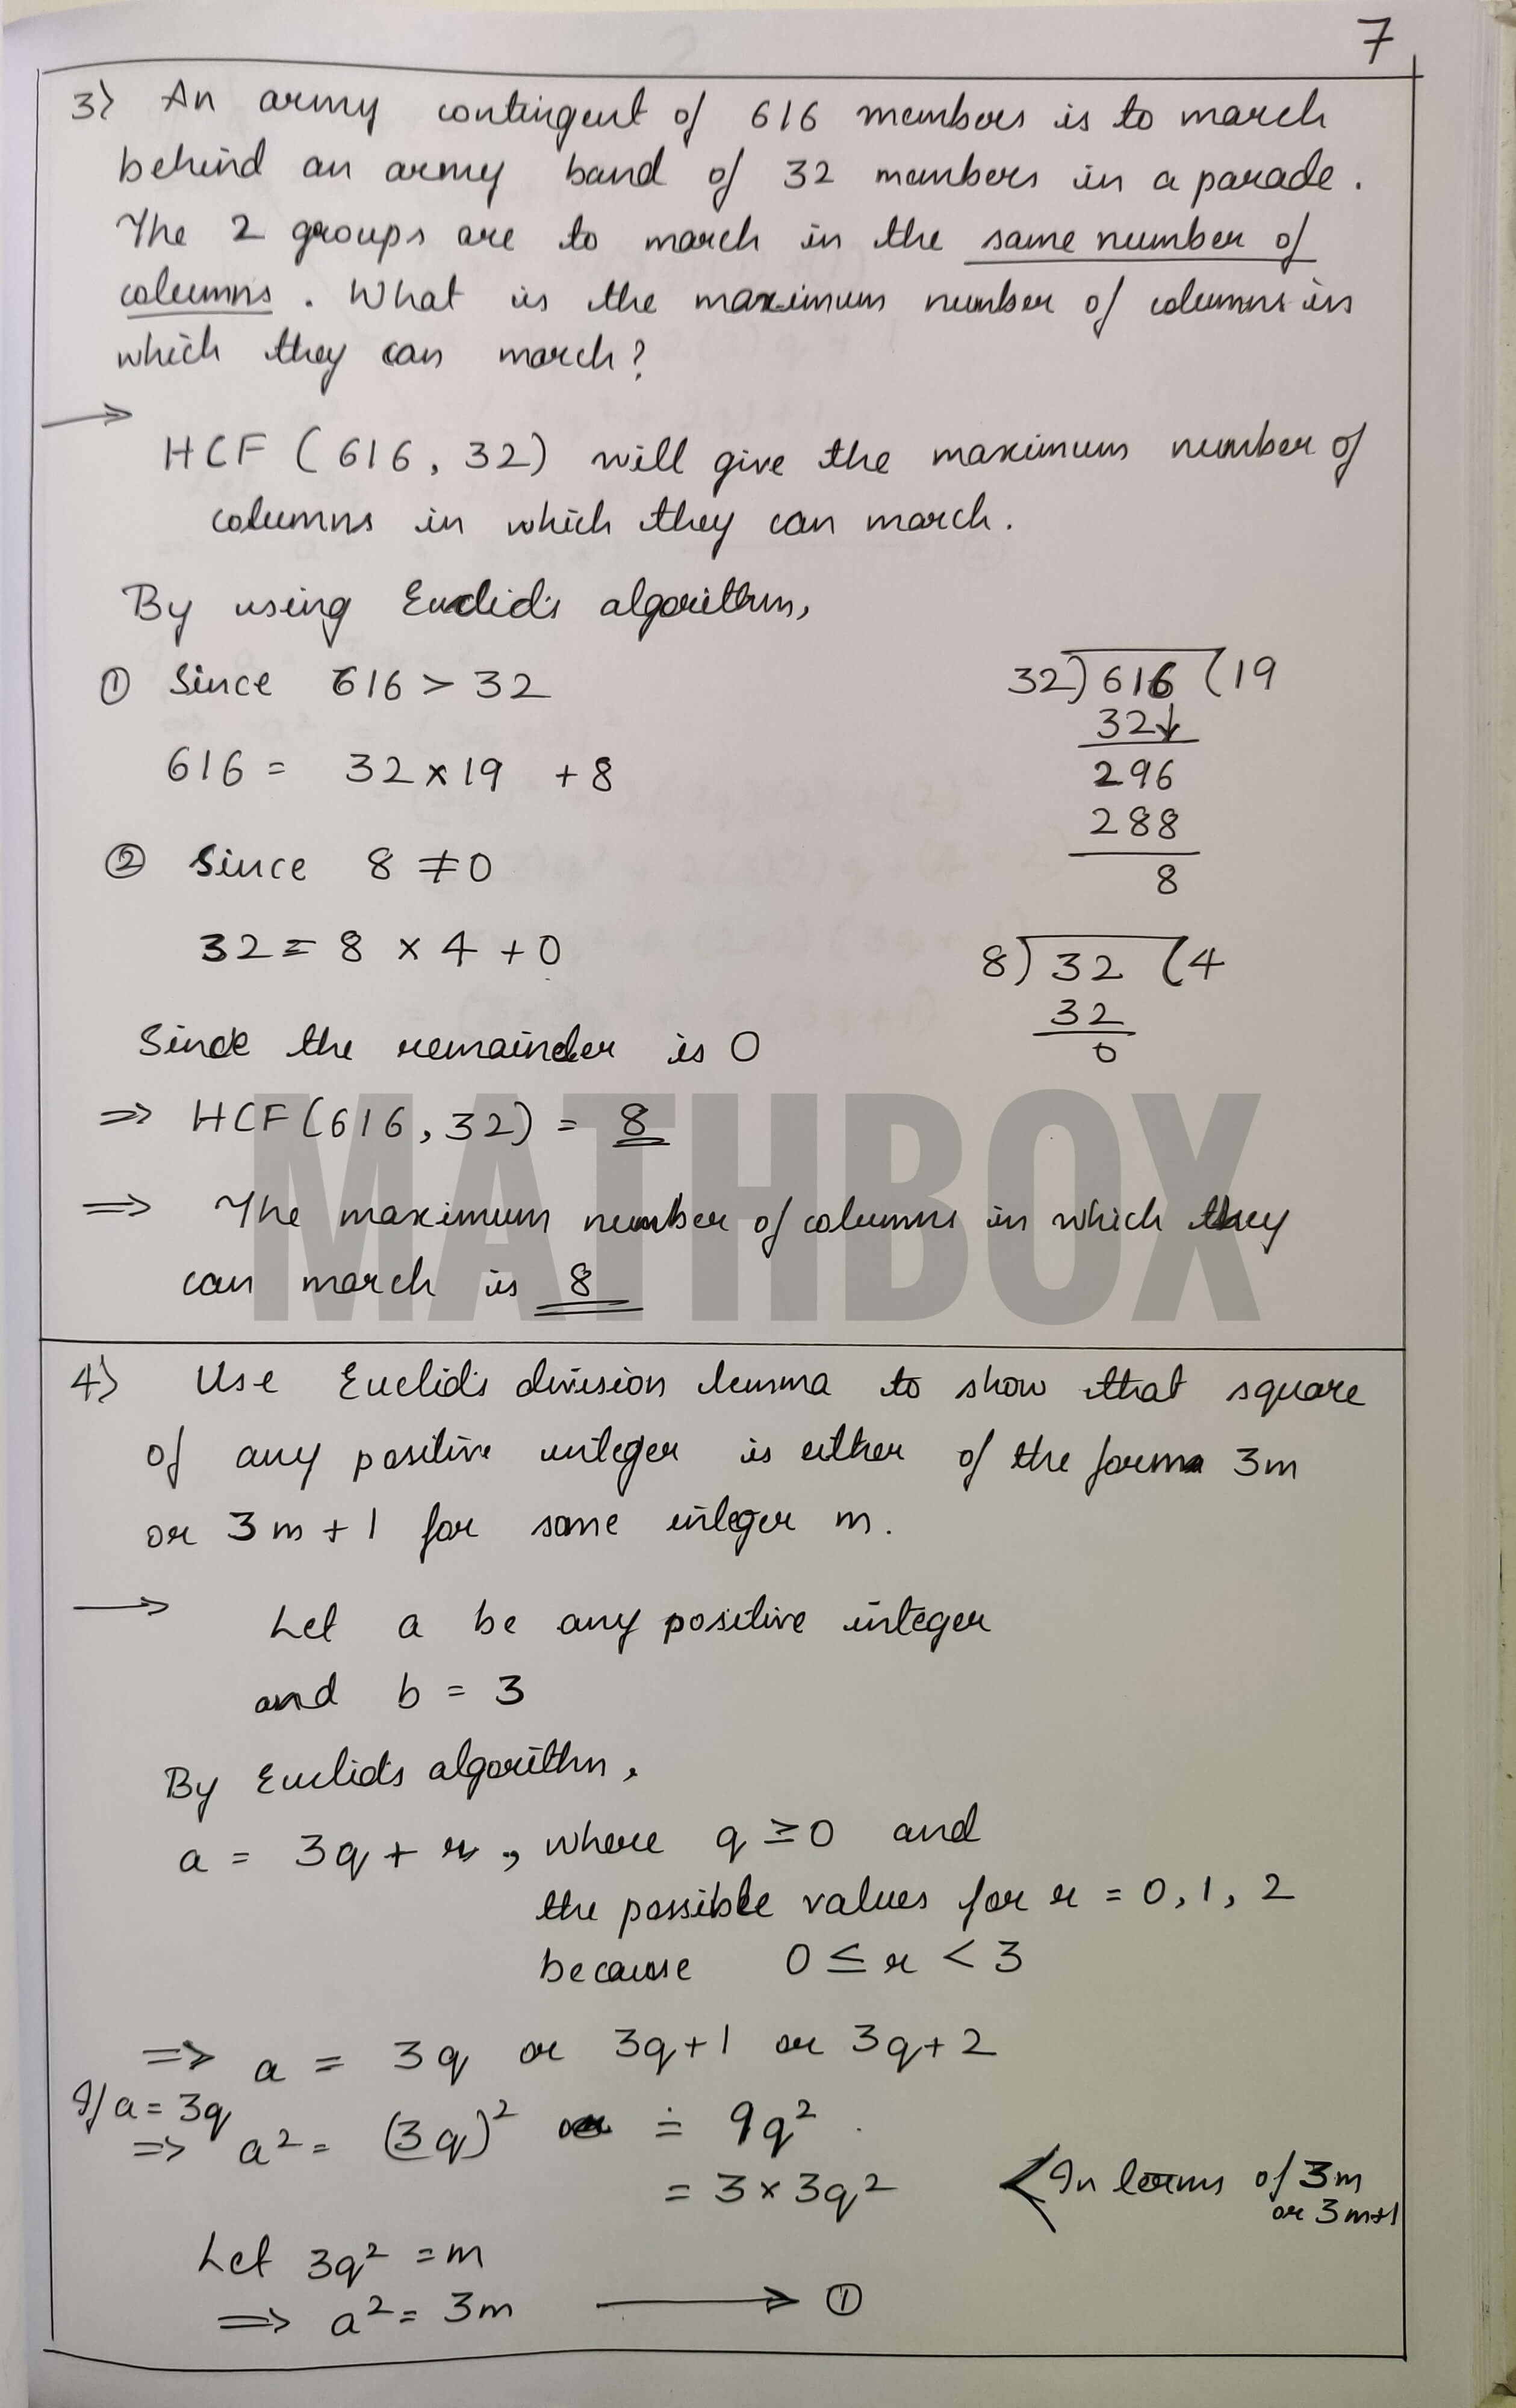 7
3) An army contingent of 616 members is to march
behind an army band of 32 members in a parade.
The 2 groups are to march in the same number of
columns. What is the maximum number of columns in
which they can march?
→
HCF (616, 32) will give the maximum number of
columns in which they can march.
By using Euclid's algorithm,
① Since 616 > 32
616 = 32 × 19 + 8
② Since 8 ≠ 0
32 = 8 × 4 + 0
Since the remainder is 0
32) 616 (19
32↓
296
288
8
8) 32 (4
32
0
⇒ HCF (616, 32) = 8
⇒ The maximum number of columns in which they
can march is 8
MATHBOX
4) Use Euclid's division lemma to show that square
of any positive integer is either of the form 3m
or 3m + 1 for some integer m.
→ Let a be any positive integer
and b = 3
By Euclid's algorithm,
a = 3q + r, where q ≥ 0 and
the possible values for r = 0, 1, 2
because 0 ≤ r < 3
⇒ a = 3q or 3q+1 or 3q+2
If a = 3q
⇒ a² = (3q)² = 9q²
= 3 × 3q² < In terms of 3m
or 3m+1
Let 3q² = m
⇒ a² = 3m → ①